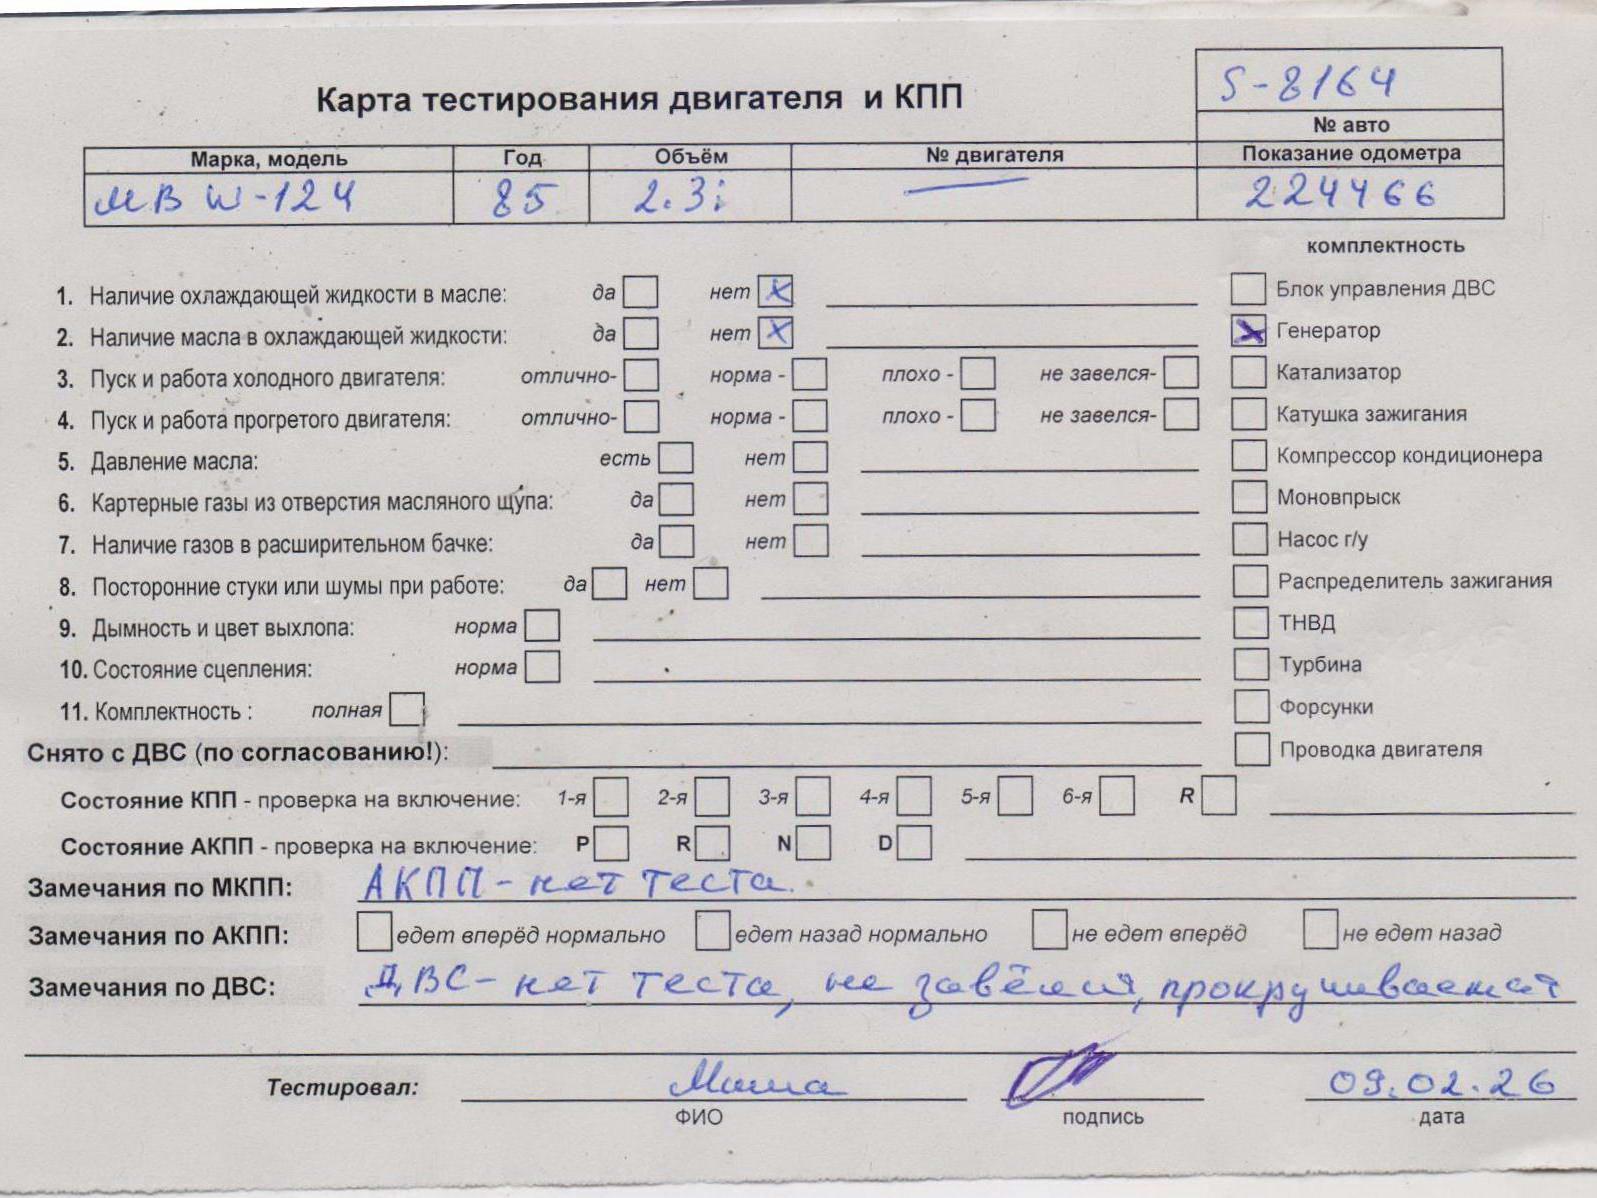 S-8164
Карта тестирования двигателя и КПП
№ авто
Марка, модель Год Объём № двигателя Показание одометра
МВ W-124 85 2.3i — 224466
комплектность
1. Наличие охлаждающей жидкости в масле: да нет X Блок управления ДВС
2. Наличие масла в охлаждающей жидкости: да нет X X Генератор
3. Пуск и работа холодного двигателя: отлично- норма - плохо - не завелся- Катализатор
4. Пуск и работа прогретого двигателя: отлично- норма - плохо - не завелся- Катушка зажигания
5. Давление масла: есть нет Компрессор кондиционера
6. Картерные газы из отверстия масляного щупа: да нет Моновпрыск
7. Наличие газов в расширительном бачке: да нет Насос г/у
8. Посторонние стуки или шумы при работе: да нет Распределитель зажигания
9. Дымность и цвет выхлопа: норма ТНВД
10. Состояние сцепления: норма Турбина
11. Комплектность : полная Форсунки
Снято с ДВС (по согласованию!): Проводка двигателя
Состояние КПП - проверка на включение: 1-я 2-я 3-я 4-я 5-я 6-я R
Состояние АКПП - проверка на включение: P R N D
Замечания по МКПП: АКПП - нет теста.
Замечания по АКПП: едет вперёд нормально едет назад нормально не едет вперёд не едет назад
Замечания по ДВС: ДВС - нет теста, не завёлся, прокручивается
Тестировал: Миша 09.02.26
ФИО подпись дата